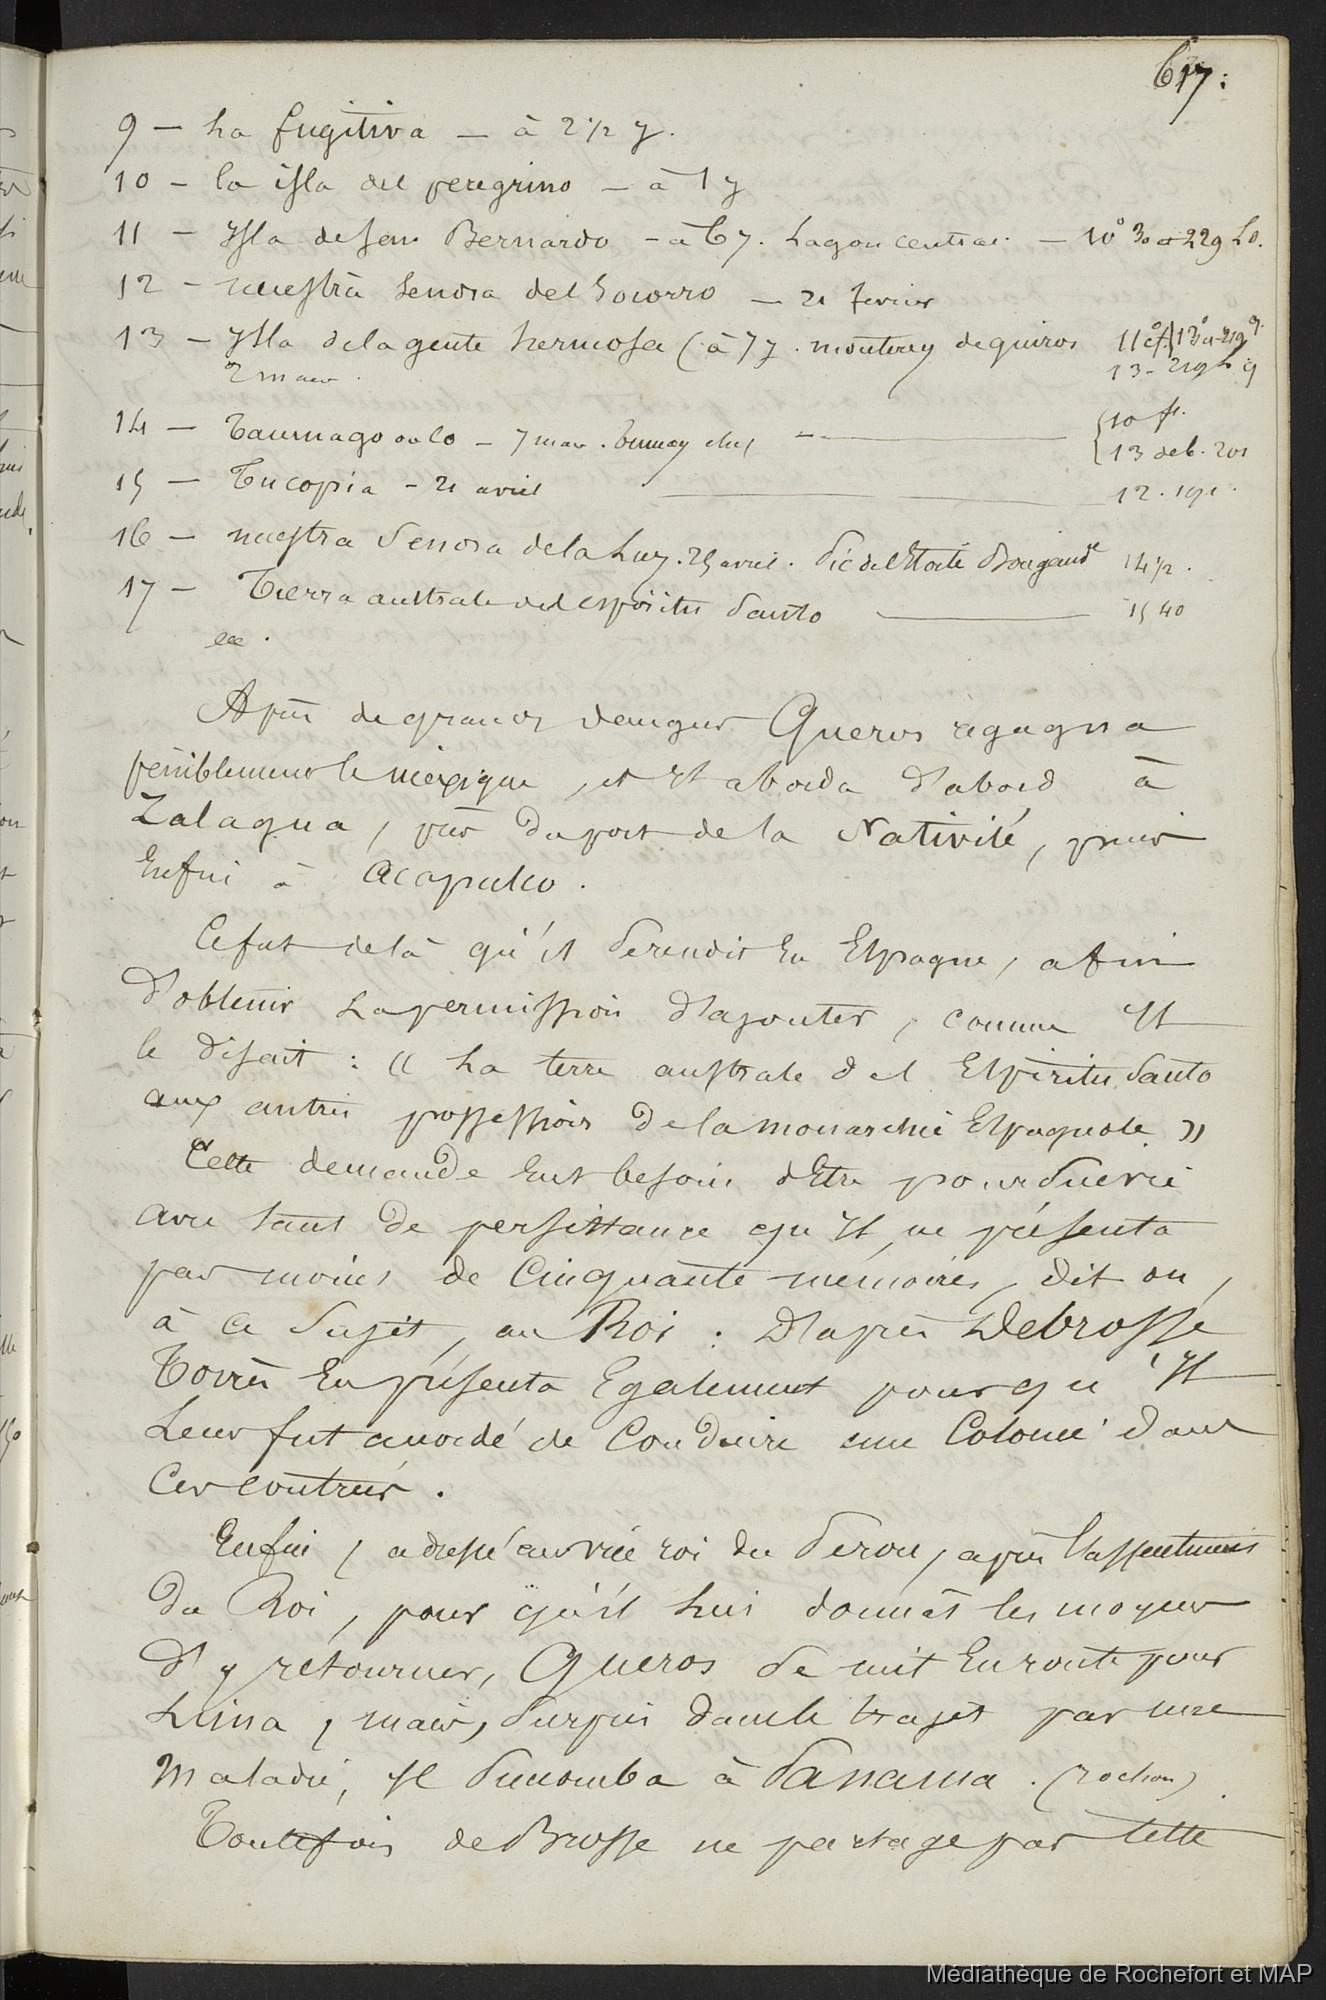 617:
9 — La fugitiva — à 2 1/2 j.
10 — la isla del peregrino — à 1 j
11 — Ysla de sen Bernardo — à 6 j. Lagon central — 10° 30 et 229 Lo.
12 — nuestra Senora del Socorro — 21 fevrier
13 — Ysla de la gente hermosa (à 7 j. monterey de quiros 11° et
2 mars. 13 - 219
14 — Taumago ou lo — 7 mars. Tumay chef — { 10 f.
{ 13 deb. 201
15 — Tucopia — 21 avril — 12. 191.
16 — nuestra Senora de la Luz. 25 avril. Pic de l'Etoile Bougaud le 14 1/2.
17 — Tierra australe del espiritu Santo — 15 40
etc.
Après de grands dangers Queros regagna
péniblement le mexique, et Il aborda d'abord à
Zalagua, près du port de la Nativité, puis
Enfin à Acapulco.
Ce fut de là qu'il Se rendit En Espagne, afin
d'obtenir La permission d'ajouter, comme Il
le disait : « La terre australe del Espiritu Santo
aux autres possessions de la monarchie Espagnole »
Cette demande Eut besoin d'Etre poursuivie
avec tant de persistance qu'Il ne présenta
pas moins de Cinquante mémoires, dit on,
à ce Sujet, au Roi. D'après Debrosse
Torrès En présenta Egalement pour qu'Il
Leur fut accordé de Conduire une Colonie dans
Ces contrées.
Enfin, adressé au vice roi du Perou, après l'assentiment
du Roi, pour qu'il Lui donnât les moyens
d'y retourner, Queros Se mit En route pour
Lima, mais, Surpris dans le trajet par une
Maladie, Il Succomba à Panama. (Rochon).
Toutefois de Brosse ne partage pas Cette
Médiathèque de Rochefort et MAP